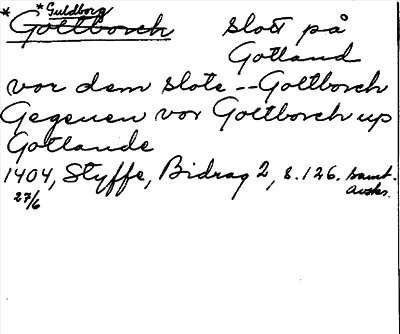 * Guldborg
* Goltborch slott på
Gotland
vor dem slote -- Goltborch
Gegenen vor Goltborch up
Gotlande
1404, Styffe, Bidrag 2, s. 126. samt.
27/6 avskr.